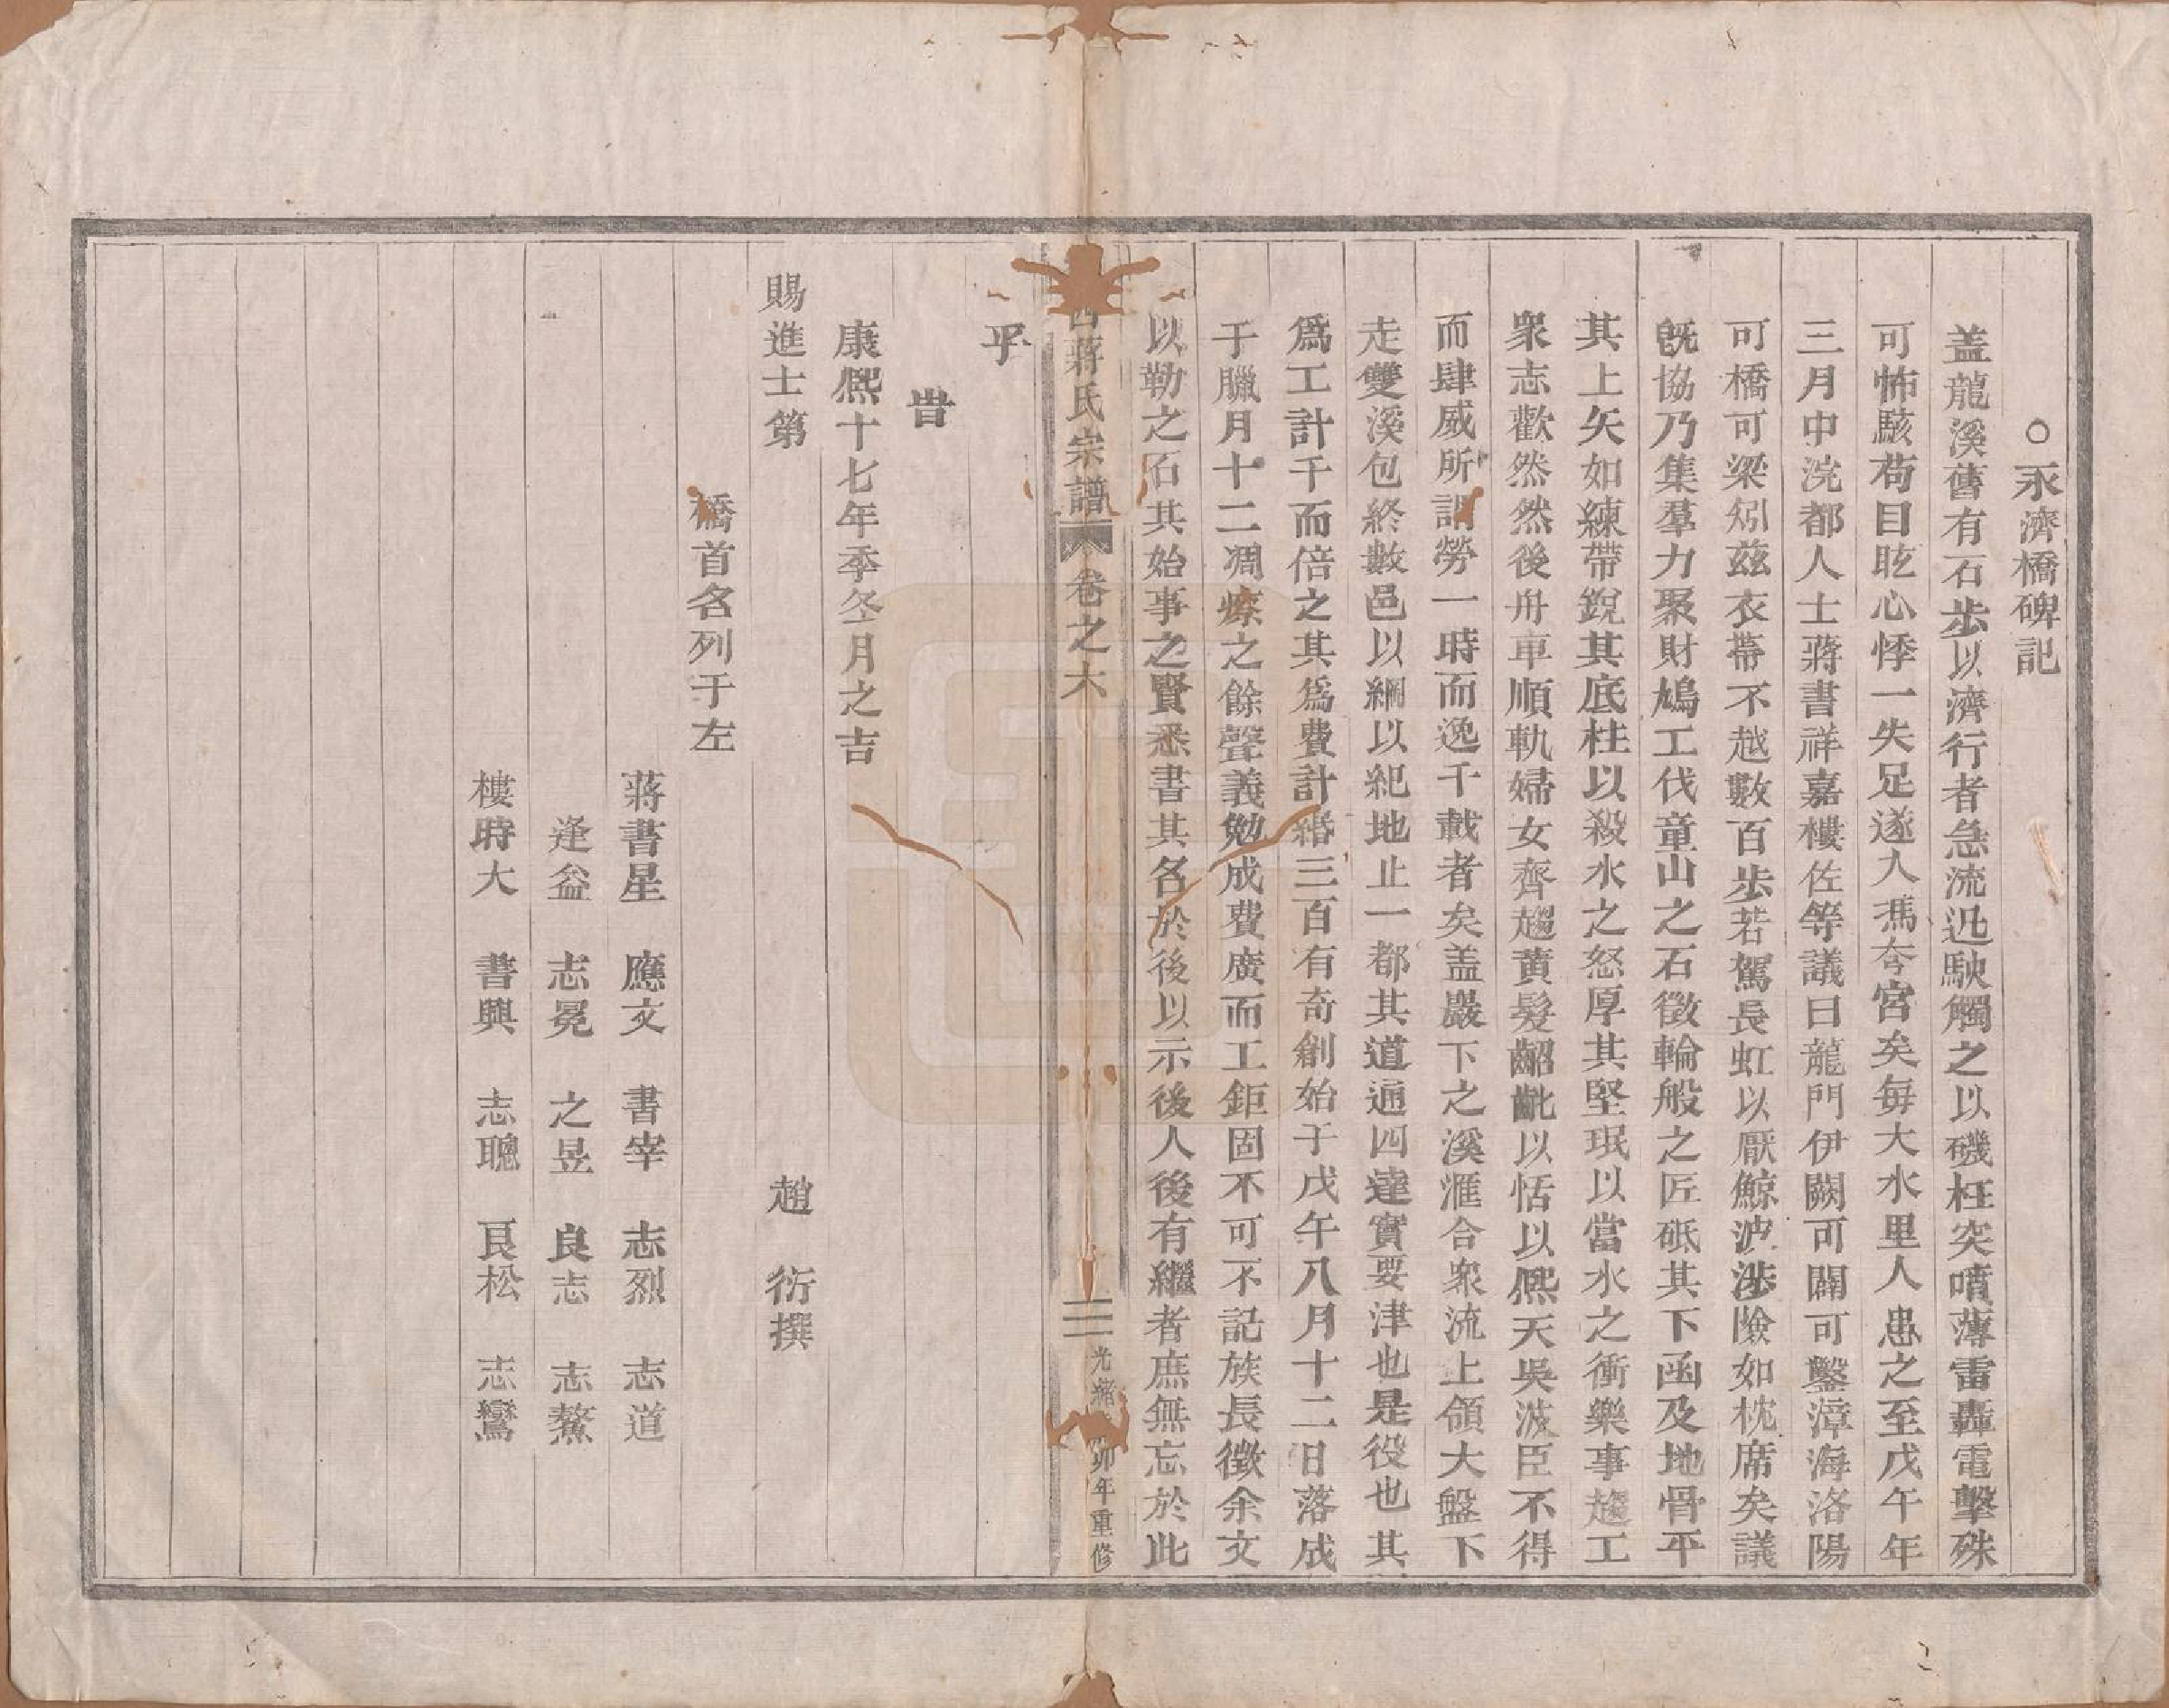 ○永濟橋碑記
盖龍溪舊有石步以濟行者急流迅駛觸之以磯枉突噴薄雷轟電擊殊
可怖駭苟目眩心悸一失足遂入馮夸宮矣每大水里人患之至戊午年
三月中浣都人士蔣書祥嘉樓佐等議曰龍門伊闕可闢可鑿漳海洛陽
可橋可梁矧兹衣帶不越數百步若駕長虹以厭鯨波涉險如枕席矣議
旣協乃集羣力聚財鳩工伐童山之石徵輪般之匠砥其下函及地骨平
其上矢如練帶銳其底柱以殺水之怒厚其堅珉以當水之衝樂事趨工
衆志歡然然後舟車順軌婦女齊趨黄髮齠齔以恬以熙天吳波臣不得
而肆威所謂勞一時而逸千載者矣盖嚴下之溪滙合衆流上領大盤下
走雙溪包終數邑以綱以紀地止一都其道通四達實要津也是役也其
爲工計千而倍之其爲費計緡三百有奇創始于戊午八月十二日落成
于臘月十二凋瘵之餘聲義勉成費廣而工鉅固不可不記族長徵余文
以勒之石其始事之賢悉書其名於後以示後人後有繼者庶無忘於此
蔣氏宗譜 卷之六 三 光緒 卯年重修
乎
旹
康熙十七年季冬月之吉
賜進士第 趙 衍撰
橋首名列于左
蔣書星 應文 書宰 志烈 志道
逢益 志冕 之昱 良志 志鰲
樓時大 書興 志聰 良松 志鸞